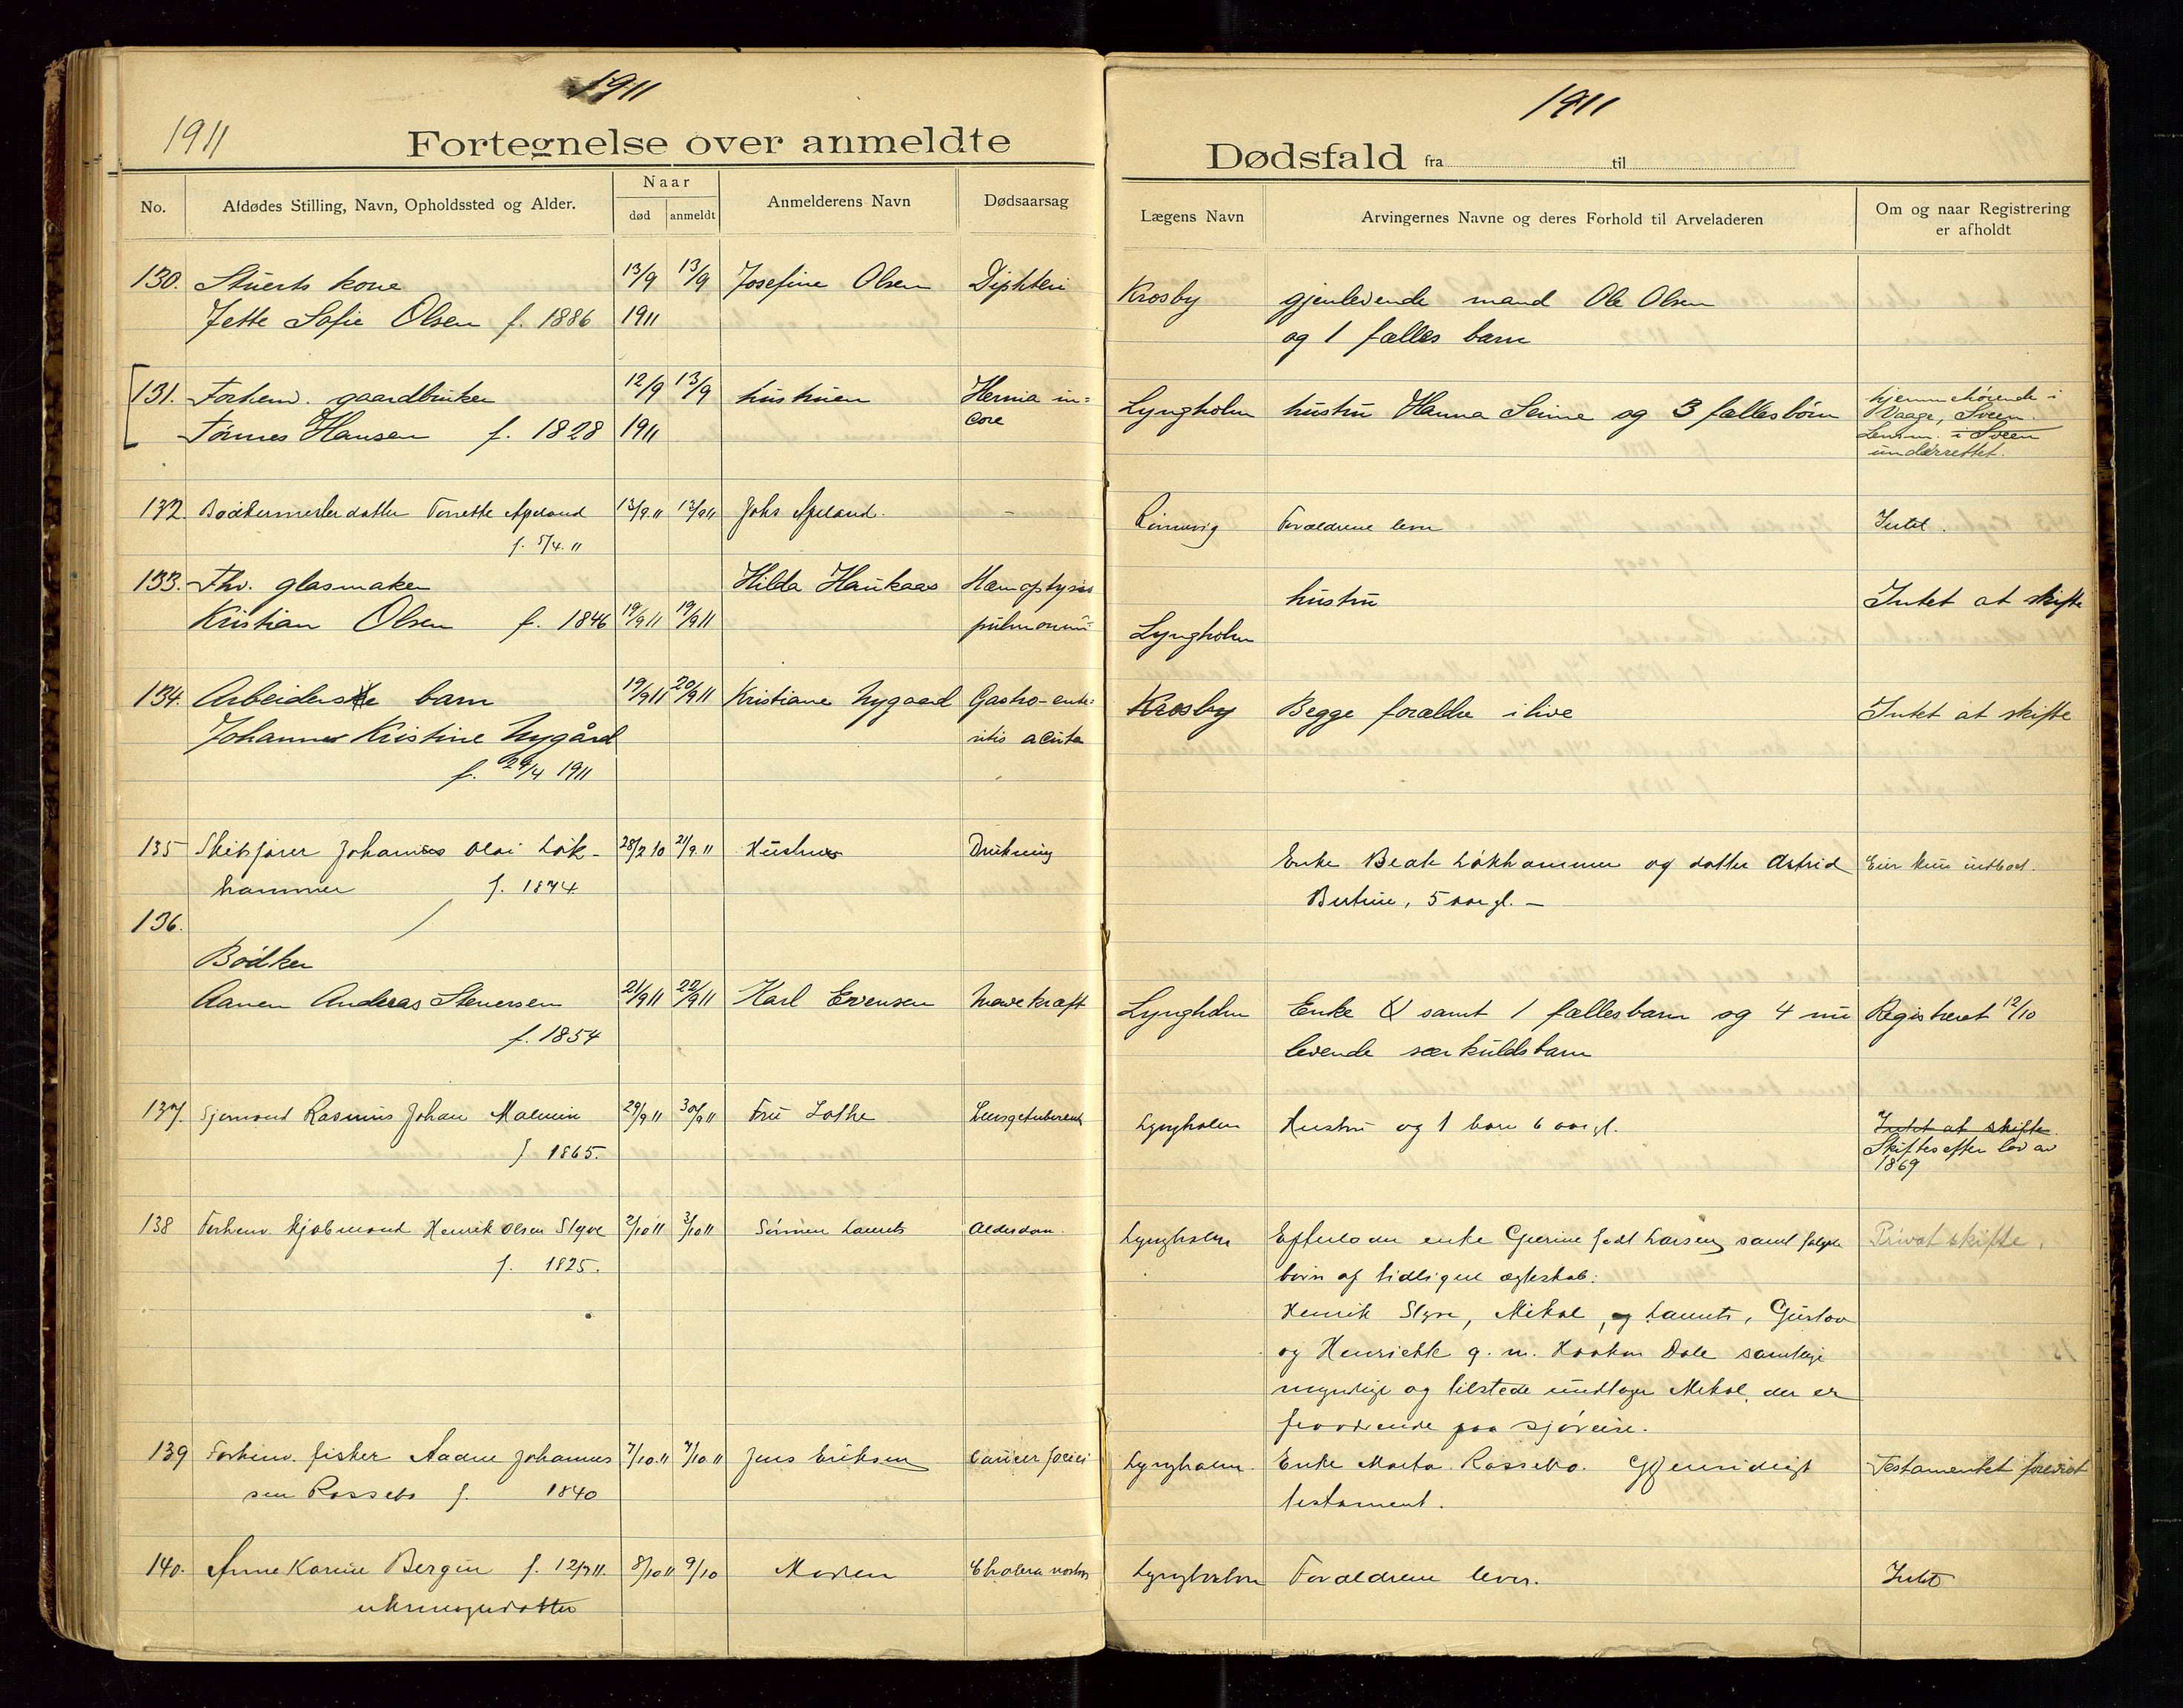 1911
1911
Fortegnelse over anmeldte
No.
Afdødes Stilling, Navn, Opholdssted og Alder.
Naar
død
anmeldt
Anmelderens Navn
Dødsaarsag
1911
Dødsfald fra til
Lægens Navn
Arvingernes Navne og deres Forhold til Arveladeren
Om og naar Registrering
er afholdt
130. Stuerts kone 13/9 13/9 Josefine Olsen Diphteri Krosby gjenlevende mand Ole Olsen
Jette Sofie Olsen f. 1886 1911 og 1 fælles barn
131. Forhenv. gaardbruker 12/9 13/9 hustruen Hernia in= Lyngholm hustru Hanna Serine og 3 fællesbørn hjemmehørende i
Vaage, Sveen.
Tønnes Hansen f. 1828 1911 core Lensm. i Sveen
underrettet.
132. Bødkermester datter Tonette Apeland 13/9 11 13/9 11 Johs Apeland. - Linnevig Forældrene lever Intet.
f. 5/4. 11
133. Fhv. glasmaker Hilda Haukaas Hæmoptysis hustru Intet at skifte
Kristian Olsen f. 1846 19/9 11 19/9 11 pulmonum Lyngholm
134. Arbeiders barn 19/9 11 20/9 11 Kristiane Nygaard Gastro-ente= Krosby Begge forældre ilive Intet at skifte
Johanne Kristine Nygård ritis acuta
f. 24/4 1911
135 Skibsfører Johannes Olai Løk- 28/2 10 21/9 11 Hustru Drukning Enke Beate Løkhammer og datter Astrid Eier kun indbod.
hammer f. 1874 Bertine, 5 aar gl. -
136.
Bødker
Aanen Andreas Stenersen 21/9 11 22/9 11 Karl Evensen Mavekræft Lyngholm Enke samt 1 fællesbarn og 4 nu Registreret 12/10
f. 1854 levende særkuldsbarn
137. Sjømand Rasmus Johan Malmin 29/9 11 30/9 11 Fru Lothe Lungetuberkul Lyngholm Hustru og 1 barn 6 aar gl. Intet at skifte
f 1865. Skiftes efter lov av
1869
138 Forhenv. kjøbmand Henrik Olsen Styve 2/10 11 3/10 11 Sønnen Laurits Alderdom. Lyngholm Efterlader enke Gurine født Larsen, samt følgde Privat skifte.
f. 1825. børn af tidligere ægteskab:
Henrik Styve, Mikal, og Laurits, Gustav
og Henriette g. m. Haakon Dale samtlige
myndige og tilstede undtagen Mikal, der er
fraværende paa sjøreise.
139 Forhenv. fisker Aadne Johannes 7/10. 11 7/10 11 Jens Eriksen Cancer faciei Lyngholm. Enke Marta Rossebø. Gjensidigt Testamentet forevist
sen Rossebø f. 1840 testament.
140. Anne Karine Bergin f. 12/7 11. 8/10 11 9/10 Moren Cholera nostras Lyngholm Forældrene lever. Intet